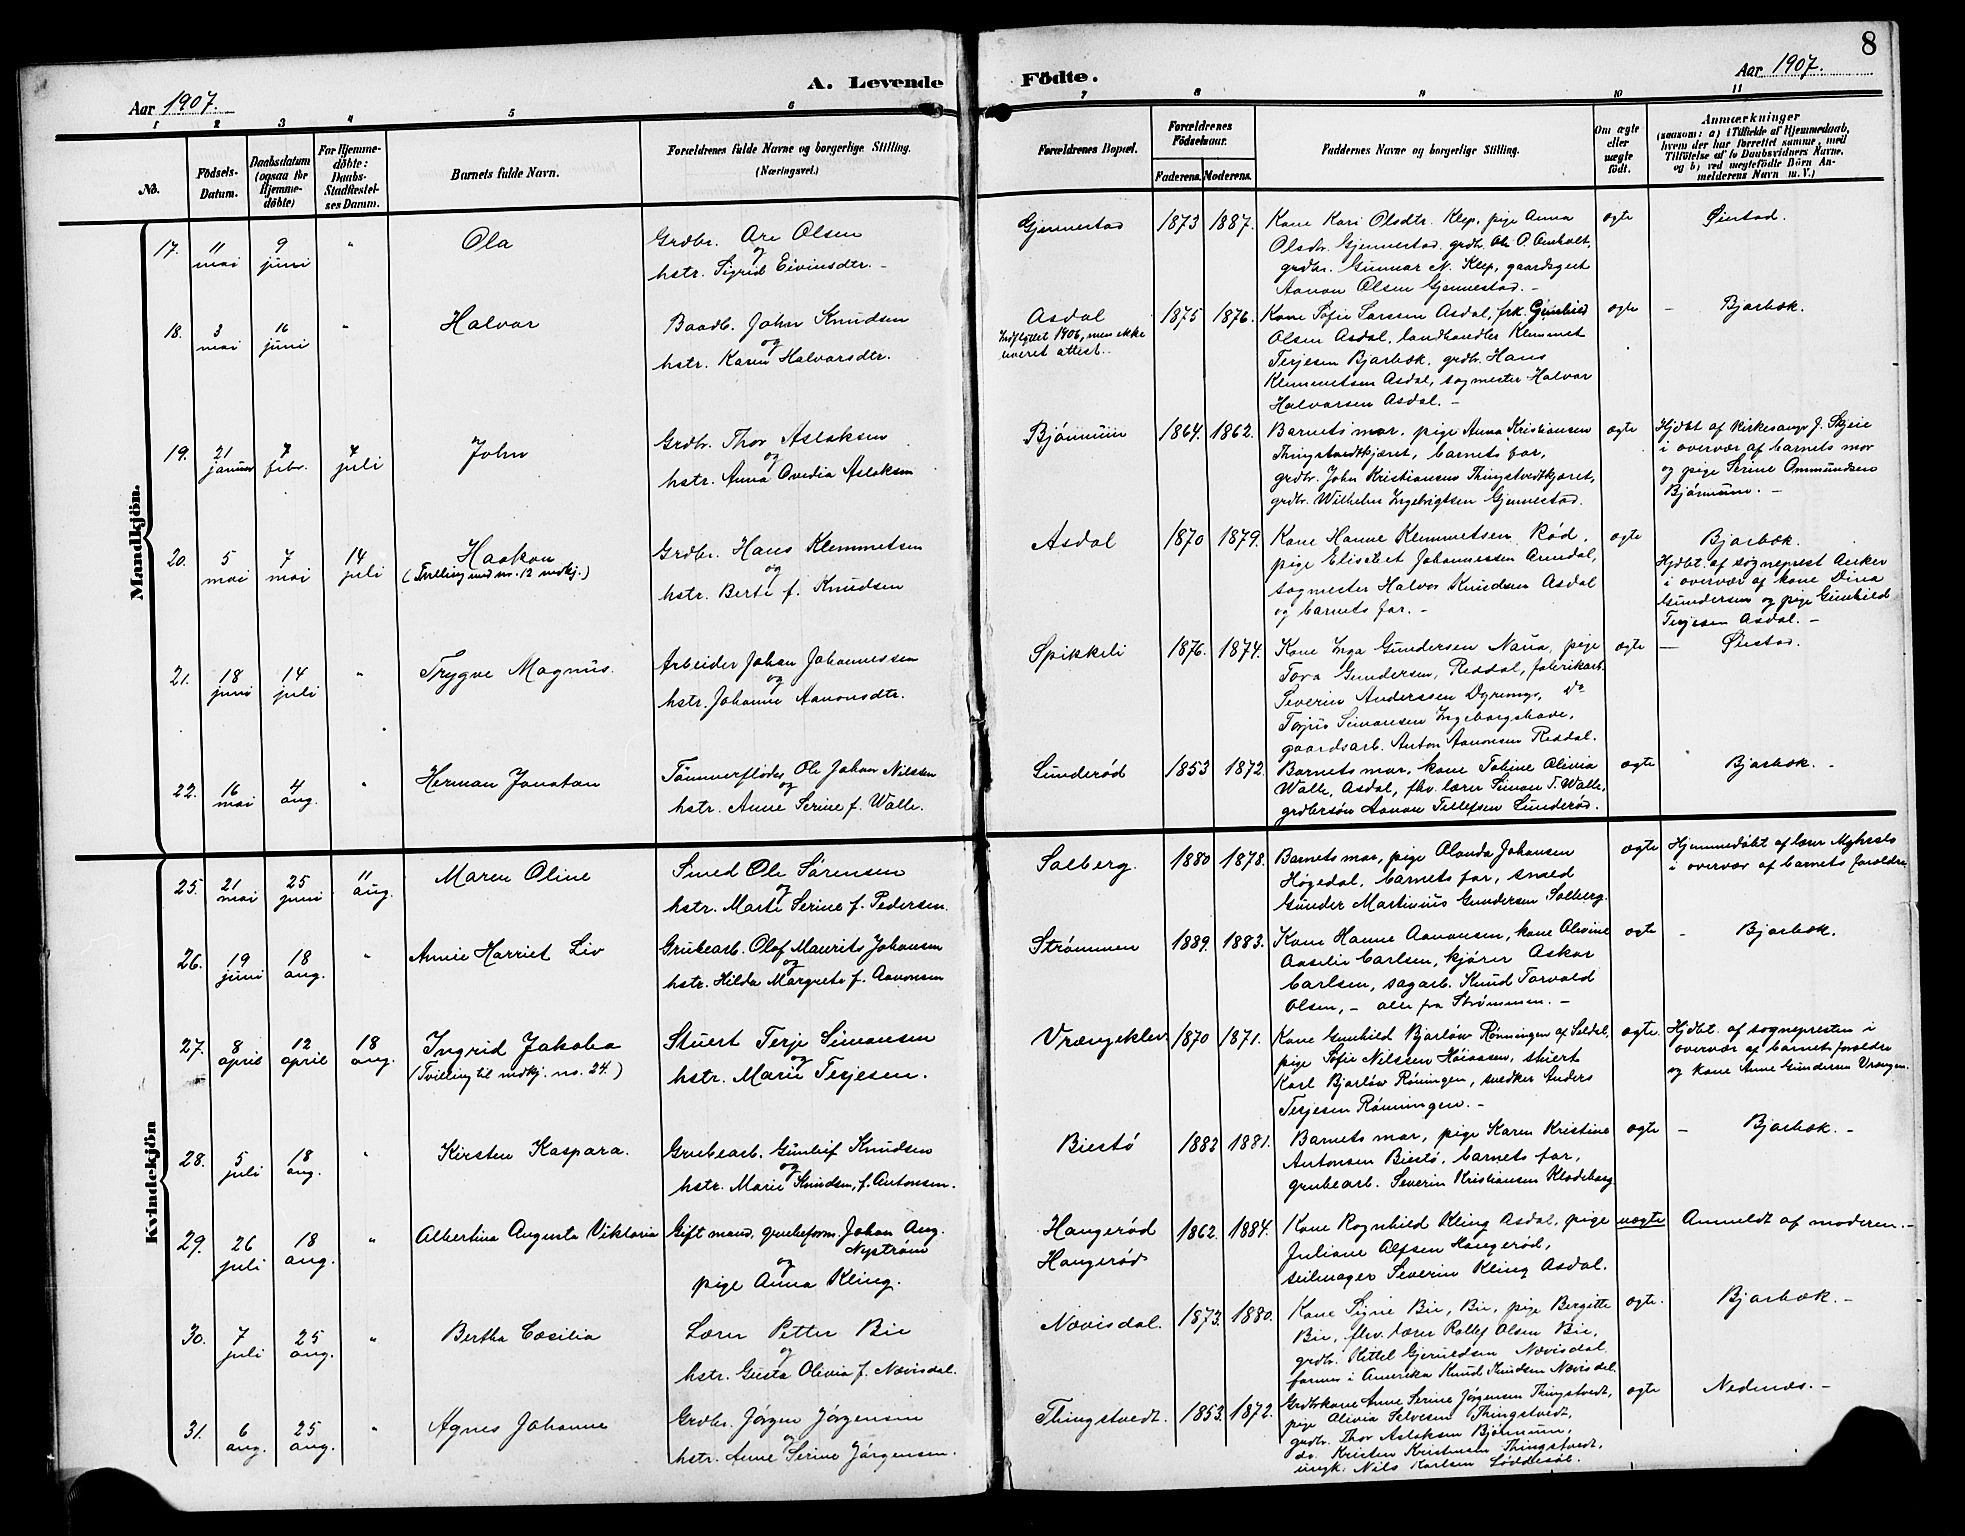 8
Aar 1907.
A. Levende Födte.
Aar 1907.
1 2 3 4 5 6 7 8 9 10 11
No.
Födsels-Datum.
Daabsdatum (ogsaa for Hjemme-döbte)
For Hjemme-döbte: Daabs-Stadfæstelses Datum.
Barnets fulde Navn.
Forældrenes fulde Navne og borgerlige Stilling.
(Næringsvei.)
Forældrenes Bopæl.
Forældrenes Födselsaar.
Faderens. Moderens.
Faddernes Navne og borgerlige Stilling.
Om ægte eller uægte født.
Anmærkninger
(saasom: a) i Tilfælde af Hjemmedaab,
hvem der har forrettet samme, med
Tilföielse af to Daabsvidners Navne,
og b) ved uægtefödte Börn An-
melderens Navn m. V.)
Mandkjön.
17. 11 mai 9 juni " Ola
Grdbr. Are Olsen
og
hstr. Sigrid Eivinsdtr. -
Gjennestad 1873 1887.
Kone Kari Olsdtr. Klep, pige Anna
Olsdtr. Gjennestad, grdbr. Ole P. Omholt,
grdbr. Gunnar N. Klep, gaardsgert
Aanon Olsen Gjennestad. -
ægte Øiestad.
18. 3 mai 16 juni " Halvor
Baadb. John Knudsen
og
hstr. Karen Halvorsdtr.
Asdal
Indflyttet 1906, men ikke
leveret attest.
1875 1876.
Kone Sofie Larsen Asdal, frk. Gunhild
Olsen Asdal, landhandler Klemmet
Terjesen Bjorbæk, grdbr. Hans
Klemmetsen Asdal, sagmester Halvor
Halvorsen Asdal. -
ægte - Bjorbæk.
19. 21 januar 7 febr. 7 juli John
Grdbr. Thor Aslaksen
og
hstr. Anna Ovedia Aslaksen
Bjønnum 1864. 1862.
Barnets mor, pige Anna Kristiansen
Thingstvedtkjæret, barnets far,
grdbr. John Kristiansens Thingstvedtkjæret,
grdbr. Wilhelm Ingebrigtsen Gjennestad.
ægte
Hjdbt af Kirkesanger J. Skjeie
i overvær af barnets mor
og pige Serine Ommundsen
Bjønnum. -
20. 5 mai 7 mai 14 juli Haakon
(Tvilling med no. 12 mdkj.)
Grdbr. Hans Klemmetsen
og
hstr. Berte f. Knudsen
Asdal 1870 1879.
Kone Hanne Klemmetsen Rød,
pige Elisabet Johannessen Arendal,
sagmester Halvor Knudsen Asdal
og barnets far. -
ægte Bjorbæk.
Hjdbt. af sogneprest Anker
i overvær af kone Dina
Gundersen og pige Gunhild
Terjesen Asdal. -
21. 18 juni 14 juli " Trygve Magnus.
Arbeider Johan Johannessen
og
hstr. Johanne Aanonsdtr.
Spikkeli 1876. 1874.
Kone Inga Gundersen Næna, pige
Tora Gundersen, Reddal, fabrikarb.
Severin Anderssen Dyrings, Do
Terjus Simonsen Ingeborgshave,
gaardsarb. Anton Aanonsen Reddal.
ægte - Øiestad.
22. 16 mai 4 aug. " Herman Jonatan
Tømmerfløder Ole Johan Nilssen
og
hstr. Anne Serine f. Walle.
Lunderød 1853 1872.
Barnets mor, kone Tobine Olivia
Walle, Asdal, fhv. lærer Simon T. Walle,
grdbrsøn Aanon Tellefsen Lunderød.
ægte Bjorbæk. -
Kvindekjön
25. 21 mai 25 juni 11 aug. Maren Oline
Smed Ole Sørensen
og
hstr. Marte Serine f. Pedersen.
Solberg. 1880 1878.
Barnets mor, pige Olanda Johansen
Høgedal, barnets far, smed
Gunder Martinius Gundersen Solberg.
ægte
Hjemmedøbt af lærer Myhrsto
i overvær af barnets forældre
26. 19 juni 18 aug. " Annie Harriet Liv
Grubearb. Olof Maurits Johansen
og
hstr. Hilda Margrete f. Aanonsen
Strømmen 1889. 1883.
Kone Hanne Aanonsen, kone Olevine
Aasilie Carlsen, kjører Askar
Carlsen, sagarb. Knud Torvald
Olsen, - alle fra Strømmen. -
ægte - Bjorbæk.
27. 8 april 12 april 18 aug. Ingrid Jakoba
(Tvilling til mdkj. no. 24.)
Stuert Terje Simonsen
og
hstr. Marie Terjesen.
Vrængeklev 1870 1871.
Kone Gunhild Bjørløw Rønningen af Seldal,
pige Sofie Nilssen Høiaasen, stuert
Karl Bjørløw Rønningen, snedker Anders
Terjesen Rønningen. -
ægte.
Hjdbt. af sognepresten i
overvær af barnets forældre
og kone Anne Gundersen Vrængen.
28. 5 juli 18 aug. " Kirsten Kaspara.
Grubearb. Gunleif Knudsen
og
hstr. Marie Knudsen, f. Antonsen.
Biestø 1882 1881.
Barnets mor, pige Karen Kristine
Antonsen Biestø, barnets far,
grubearb. Severin Kristiansen Klodeborg
ægte - Bjorbæk. -
29. 26 juli 18 aug. " Albertina Augusta Viktoria
Gift mand, grubeform. Johan Aug.
Nystrøm
og
pige Anna Kling.
Hangerød
Hangerød
1862. 1884.
Kone Ragnhild Kling Asdal, pige
Juliane Olsen Hangerød,
seilmager Severin Kling Asdal.
uægte Anmeldt af moderen. -
30. 7 juli 25 aug. " Bertha Cæsilia
Lærer Petter Bie
og
hstr. Gusta Olivia f. Nævisdal.
Nævisdal. 1873. 1880.
Kone Signe Bie, Bie, pige Bergitte
Bie, fhv. lærer Rollef Olsen Bie,
grdbr. Kittel Gjeruldsen Nævisdal,
farmer i Amerika Knud Knudsen Nævisdal.
ægte. Bjorbæk. -
31. 6 aug. 25 aug. " Agnes Johanne
Grdbr. Jørgen Jørgensen
og
hstr. Anne Serine Jørgensen.
Thingstvedt. 1853. 1872.
Grdbkone Anne Serine Jørgensen Thingstvedt,
pige Olivia Selvesen Thingstvedt,
grdbr. Thor Aslaksen Bjønnum,
do. Kristen Kristensen Thingstvedt,
ungk. Nils Karlsen Løddesøl.
ægte Nedenæs. -